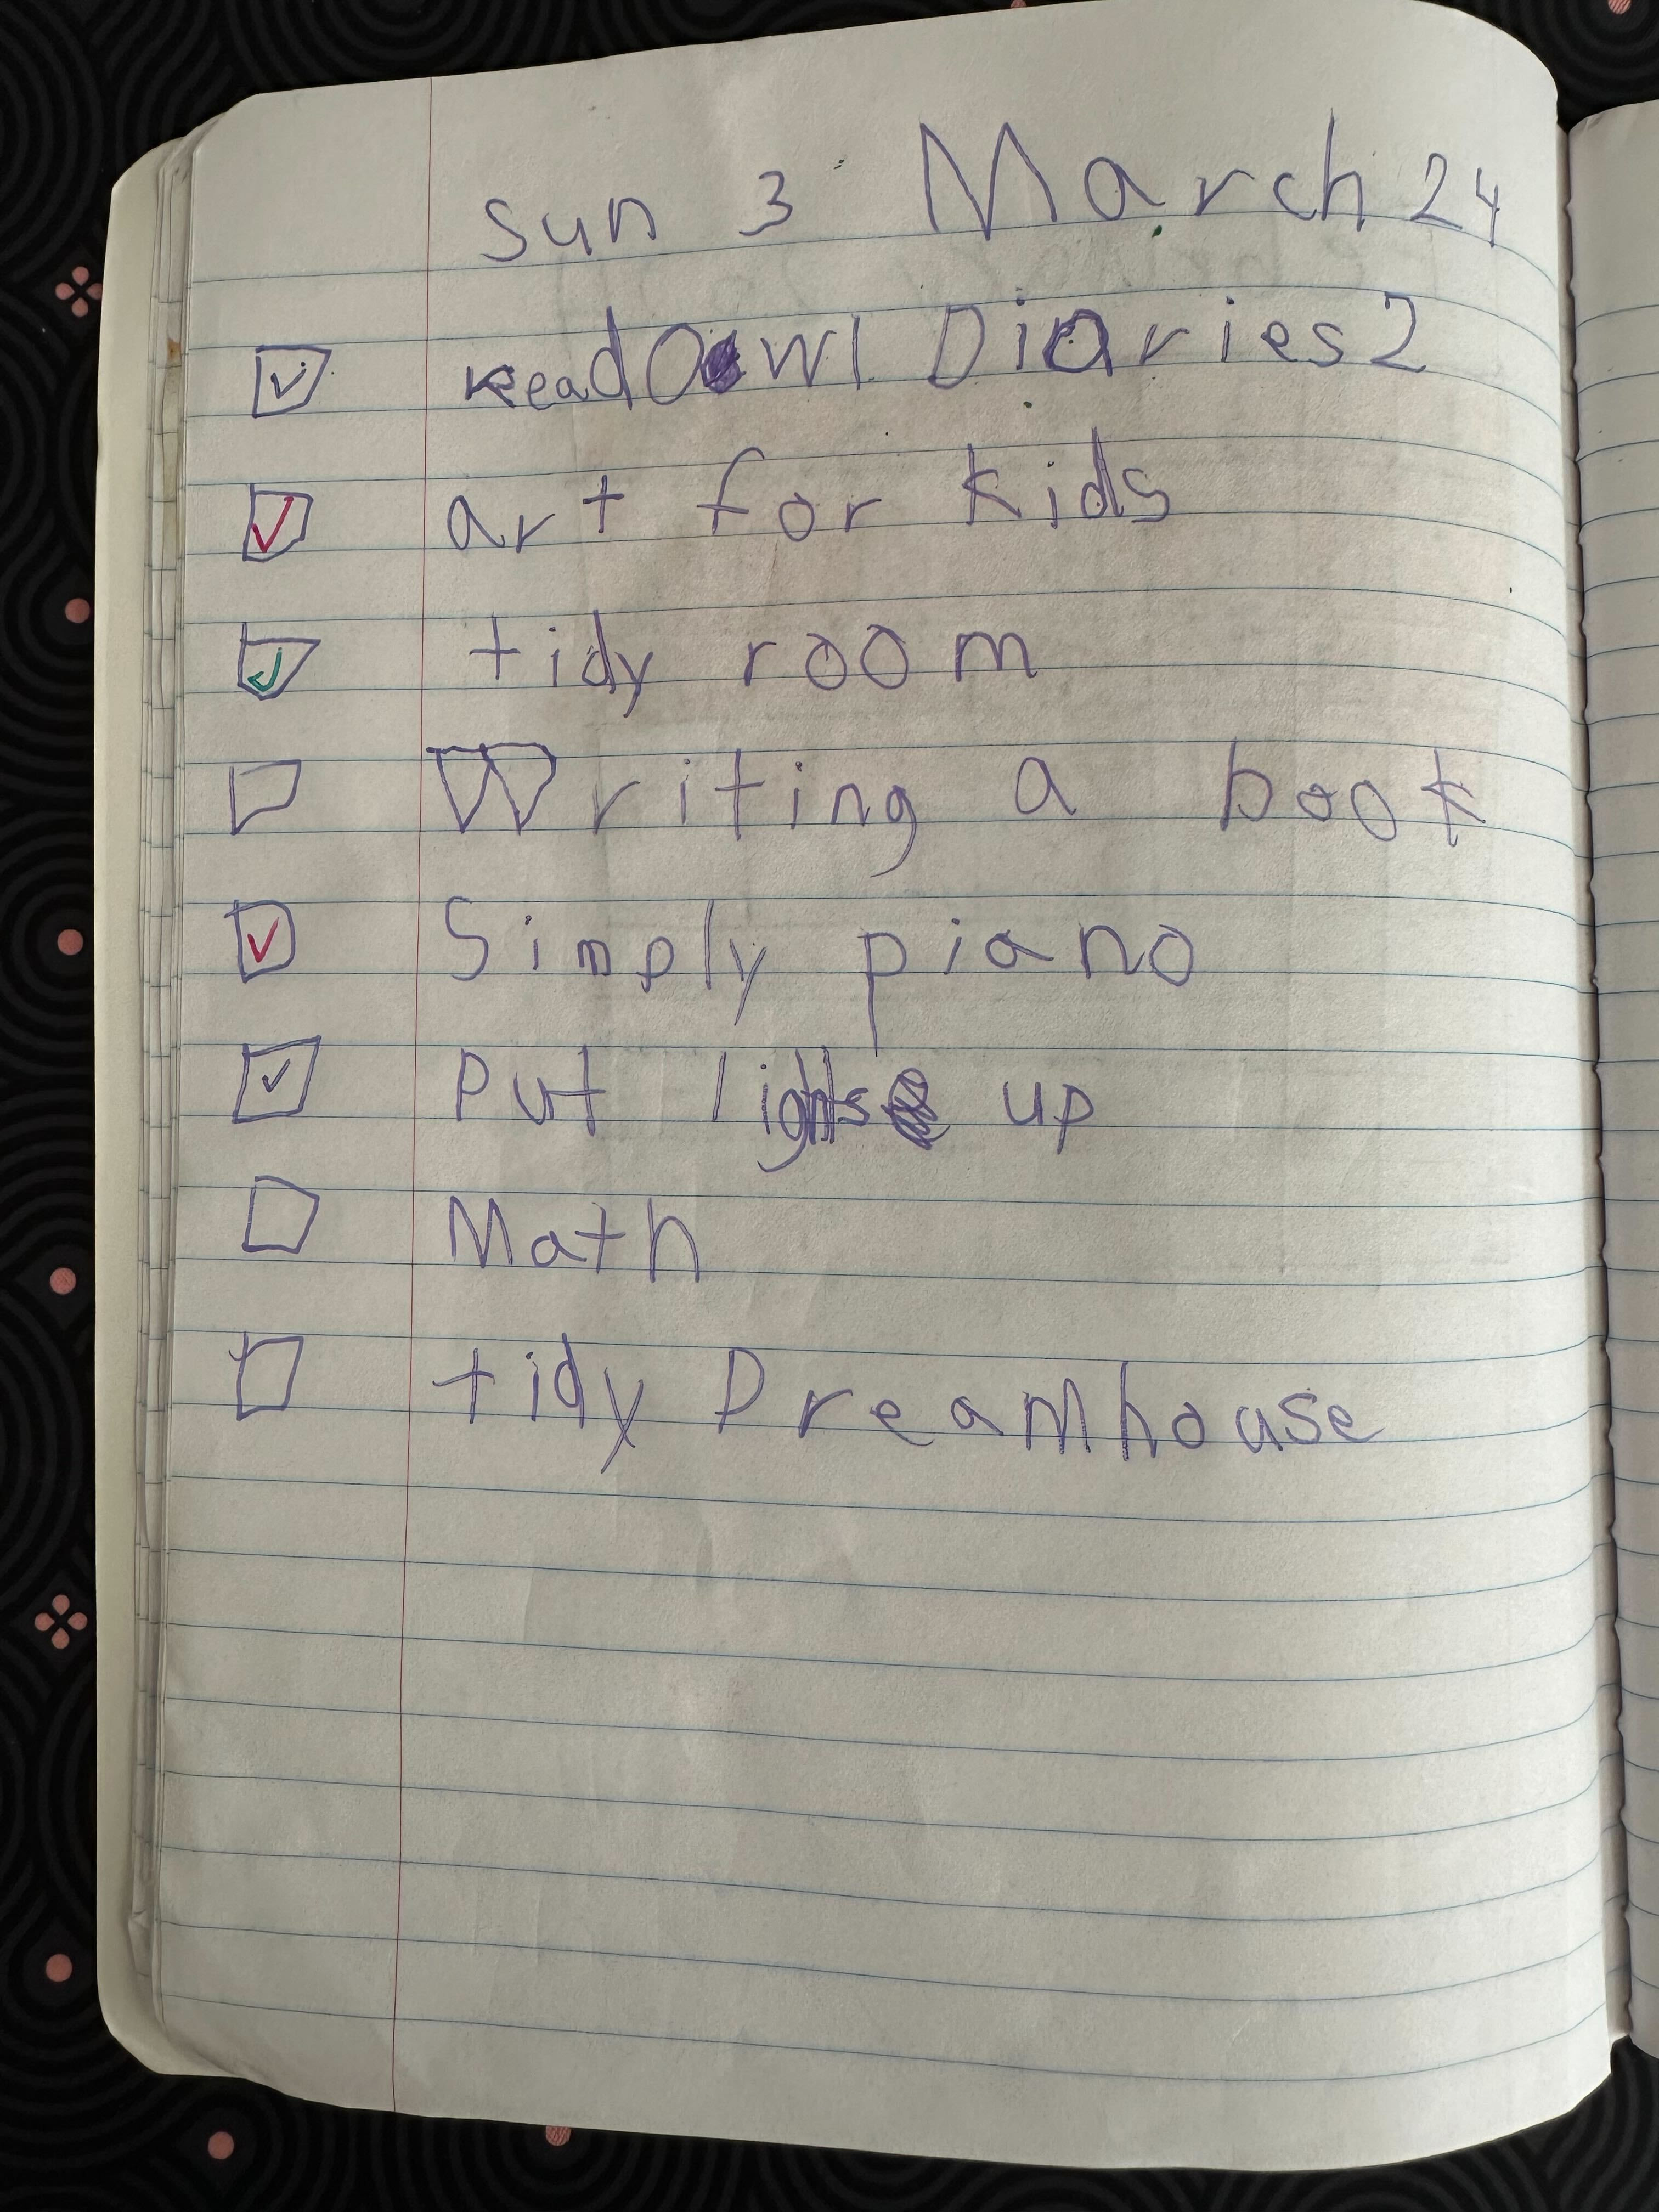 Sun 3 March 24
Read Owl Diaries 2
art for kids
tidy room
Writing a book
Simply piano
Put lights up
Math
tidy Dreamhouse